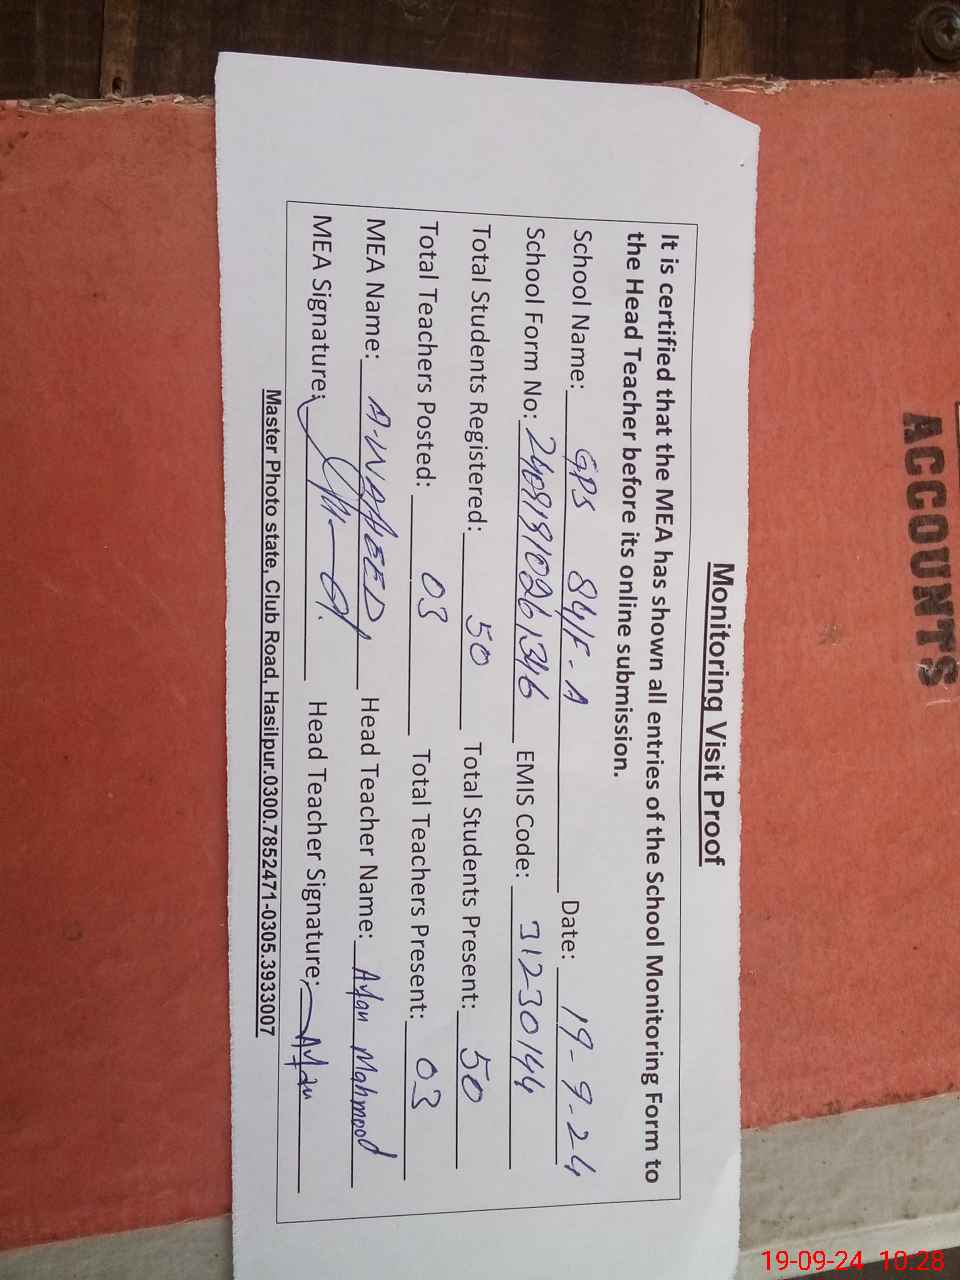 ACCOUNTS
Monitoring Visit Proof
It is certified that the MEA has shown all entries of the School Monitoring Form to
the Head Teacher before its online submission.
School Name: GPS 84/F-A Date: 19-9-24
School Form No: EMIS Code: 31230144
Total Students Registered: 50 Total Students Present: 50
Total Teachers Posted: 03 Total Teachers Present: 03
MEA Name: A-WAHEED Head Teacher Name: Mahmood
MEA Signature: Head Teacher Signature:
Master Photo state, Club Road, Hasilpur.0300.7852471-0305.3933007
19-09-24 10:28